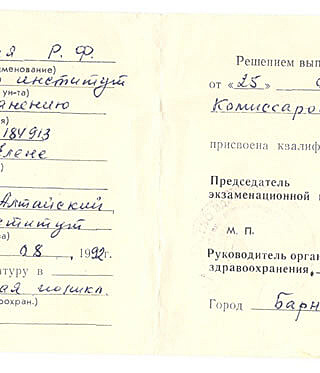 я Р. Ф.
именование)
институт
ун-та)
анению
я)
184913
Елене
)
Алтайский
ститут
а)
08 , 1992г.
атуру в
ая
оохран.)
Решением вып
от «25»
Комиссаро
присвоена квалиф
Председатель
экзаменационной к
М. П.
Руководитель орган
здравоохранения,
Город Барн